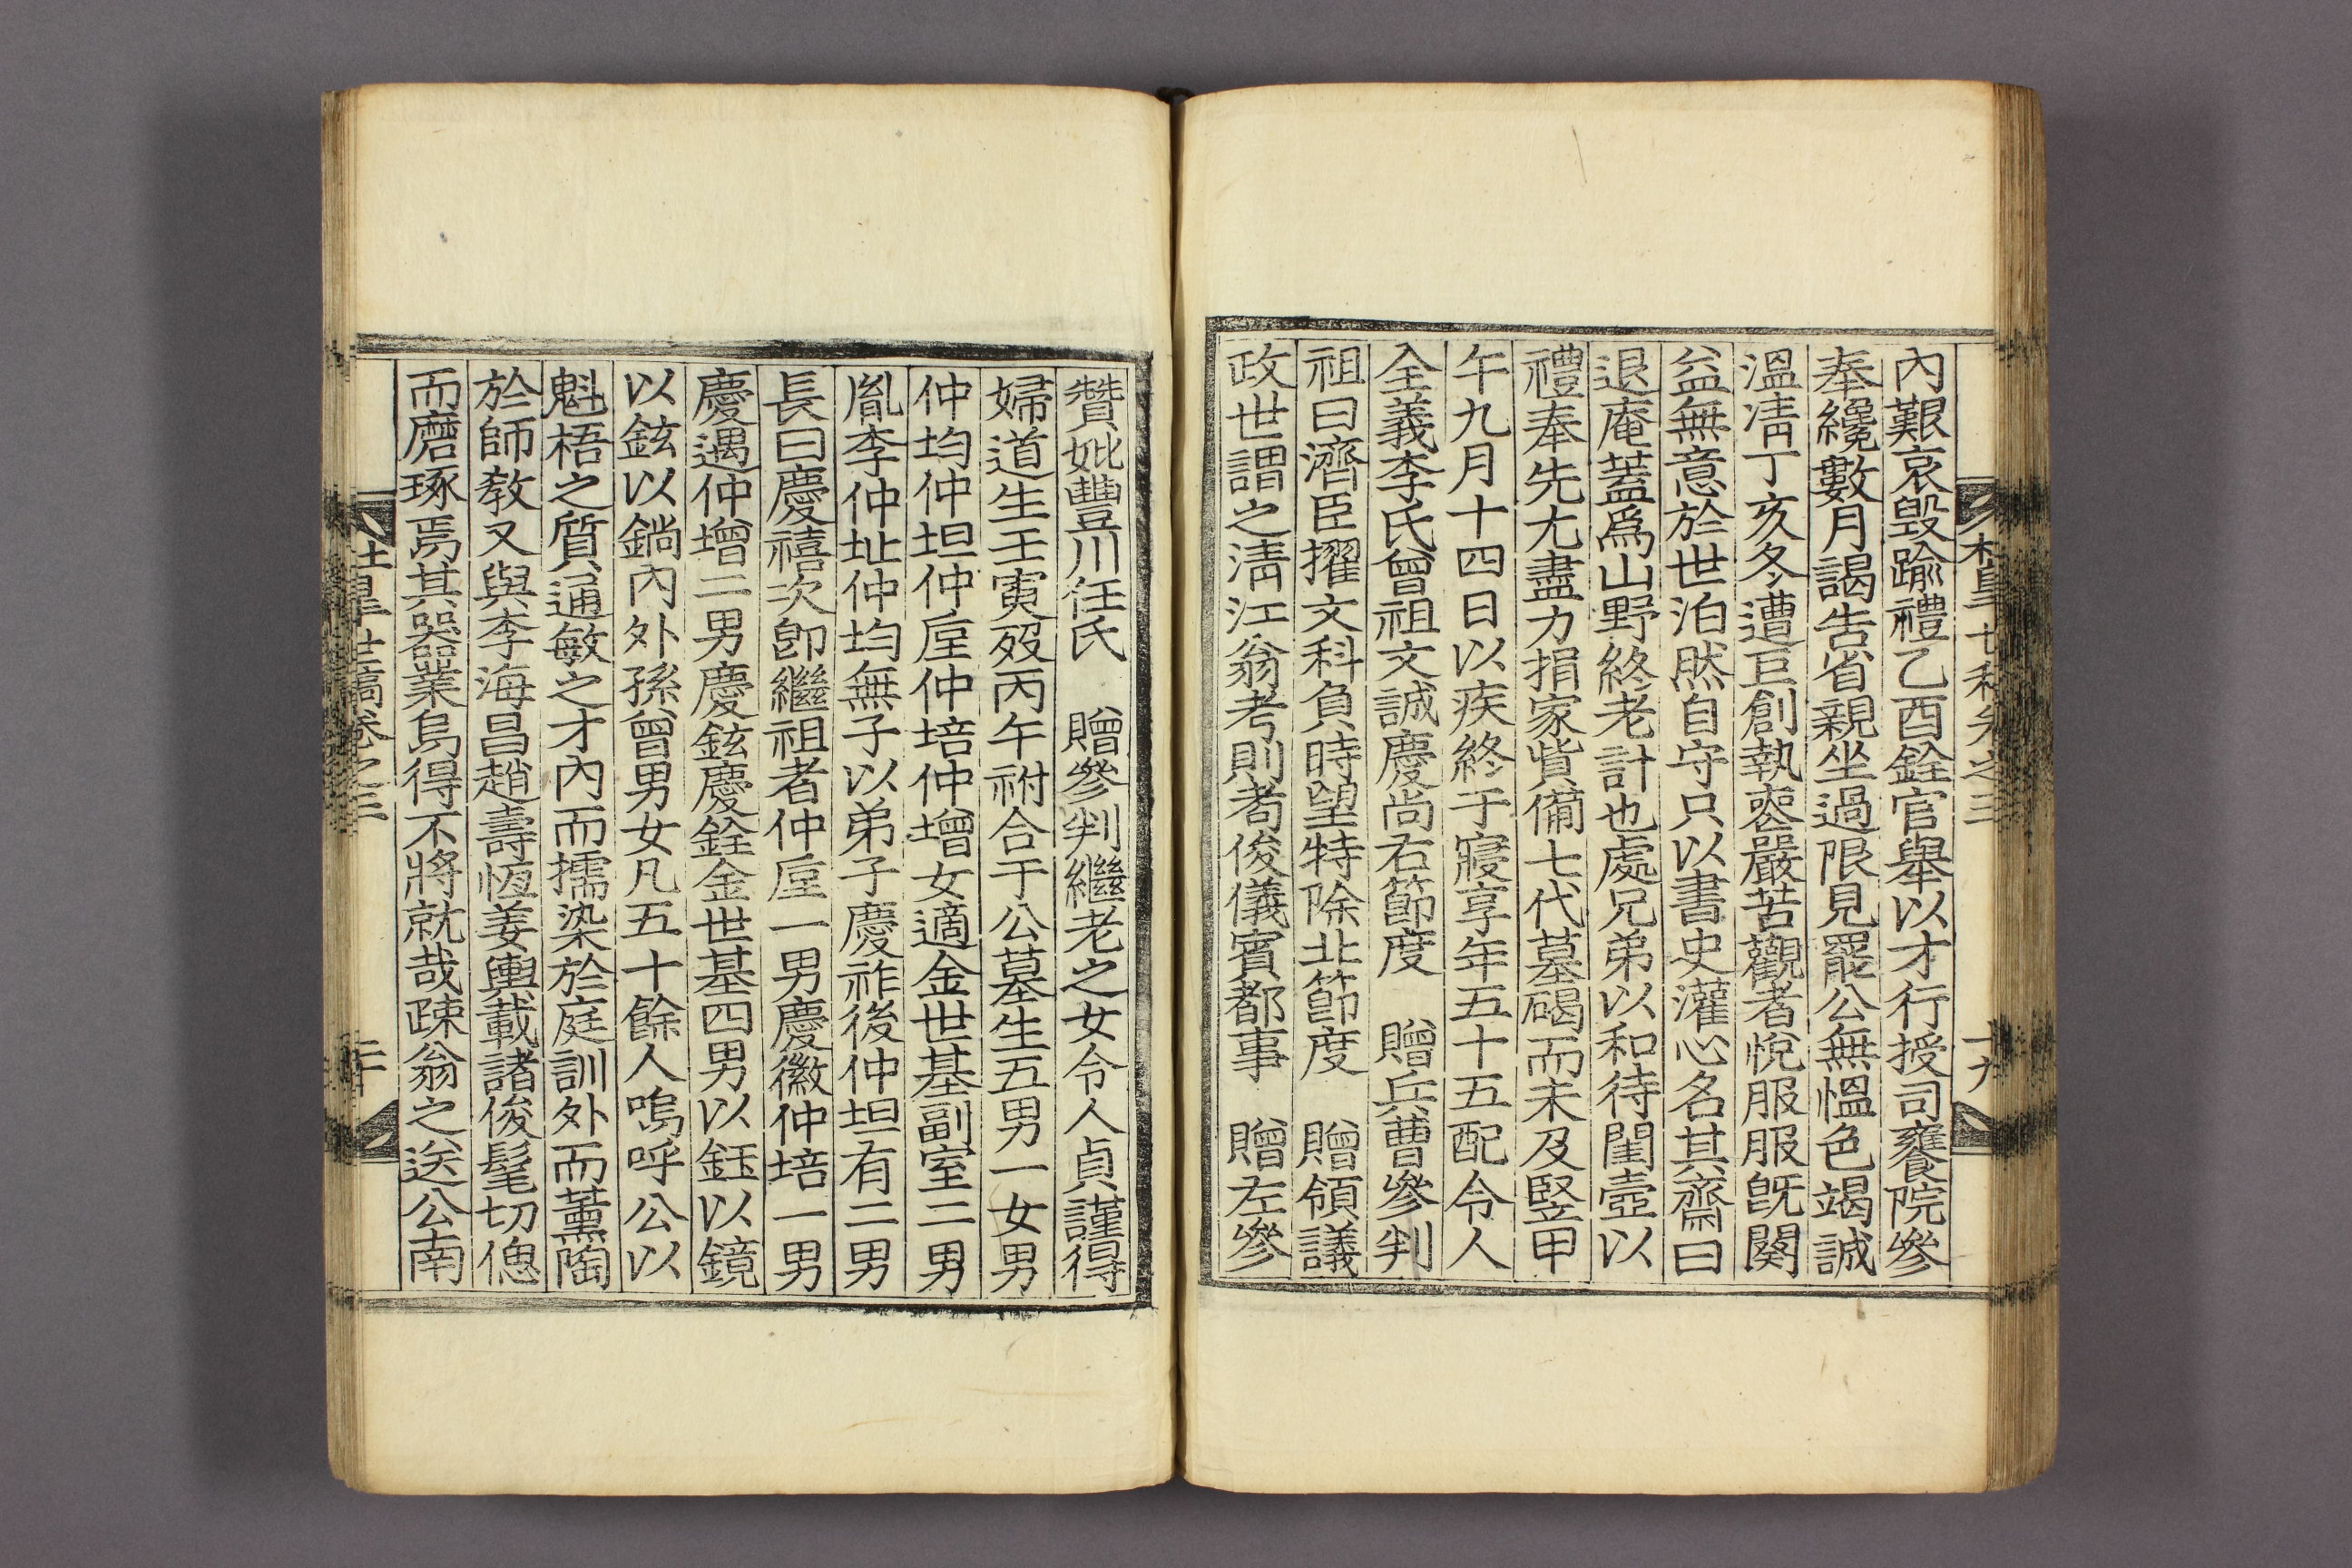 內艱哀毀踰禮乙酉銓官擧以才行授司饔院參
奉纔數月謁告省親坐過限見罷公無慍色竭誠
溫凊丁亥冬遭巨創執喪嚴苦觀者悅服服旣闋
益無意於世泊然自守只以書史灌心名其齋曰
退庵蓋爲山野終老計也處兄弟以和待閨壼以
禮奉先尤盡力捐家貲備七代墓碣而未及竪甲
午九月十四日以疾終于寢享年五十五配令人
全義李氏曾祖文誠慶尙右節度 贈兵曹參判
祖曰濟臣擢文科負時望特除北節度 贈領議
政世謂之淸江翁考則耆俊儀賓都事 贈左參
十九
贊妣豐川任氏 贈參判繼老之女令人貞謹得
婦道生壬寅歿丙午祔合于公墓生五男一女男
仲均仲坦仲垕仲培仲增女適金世基副室二男
胤李仲址仲均無子以弟子慶祚後仲坦有二男
長曰慶禧次卽繼祖者仲垕一男慶徽仲培一男
慶遇仲增二男慶鉉慶銓金世基四男以鈺以鏡
以鉉以鍋內外孫曾男女凡五十餘人嗚呼公以
魁梧之質通敏之才內而擩染於庭訓外而薰陶
於師教又與李海昌趙壽恆姜輿載諸俊髦切偲
而磨琢焉其器業烏得不將就哉疎翁之送公南
世稿卷之三
二十